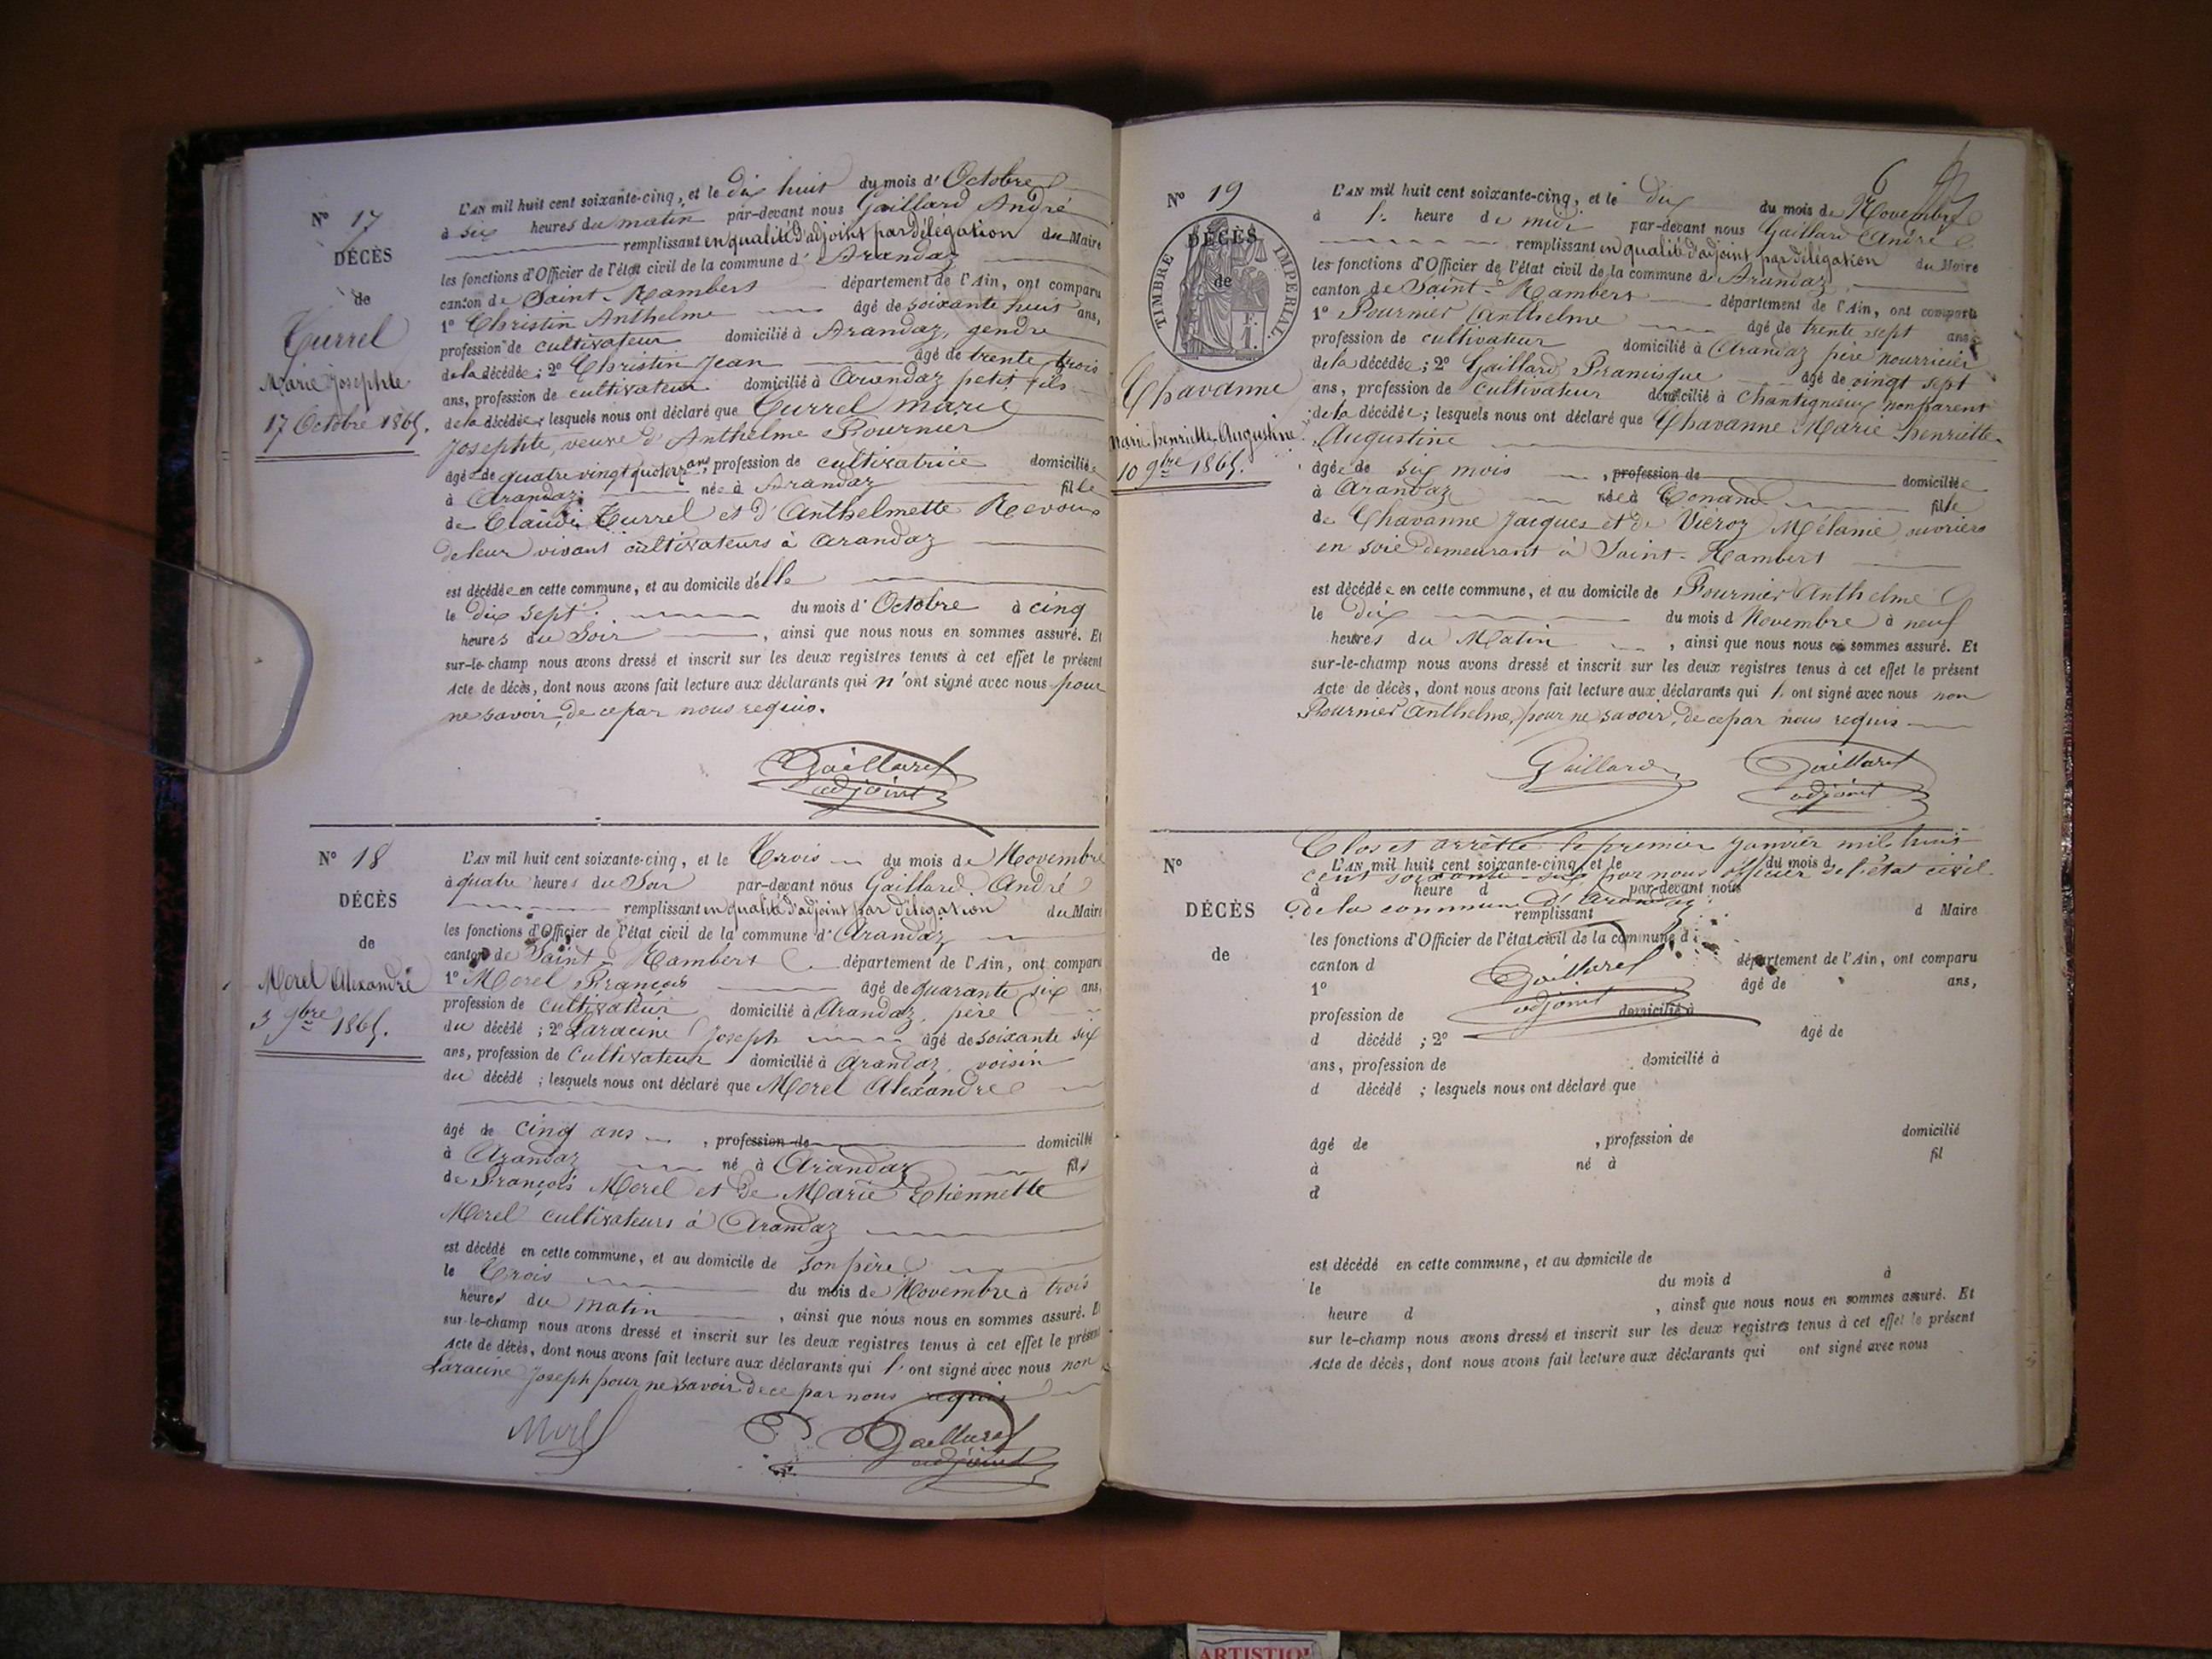 N° 17
DÉCÈS
de
Turrel
Marie Josephte
17 Octobre 1865.
L'AN mil huit cent soixante-cinq, et le dix huit du mois d' Octobre
à six heures du matin par-devant nous Gaillard André
remplissant en qualité d'adjoint par délégation du Maire
les fonctions d'Officier de l'état civil de la commune d' Arandaz
canton de Saint-Rambert département de l'Ain, ont comparu
1° Christin Anthelme âgé de soixante huit ans,
profession de cultivateur domicilié à Arandaz, gendre
de la décédée; 2° Christin Jean âgé de trente trois
ans, profession de cultivateur domicilié à Arandaz petit fils
de la décédée; lesquels nous ont déclaré que Turrel marie
Josephte, veuve d'Anthelme Fournier
âgée de quatre vingt quatorze ans, profession de cultivatrice domiciliée
à Arandaz née à Arandaz fille
de Claude Turrel et d'Anthelmette Revoux
de leur vivant cultivateurs à Arandaz
est décédée en cette commune, et au domicile d'elle
le dix sept du mois d' Octobre à cinq
heures du Soir, ainsi que nous nous en sommes assuré. Et
sur-le-champ nous avons dressé et inscrit sur les deux registres tenus à cet effet le présent
Acte de décès, dont nous avons fait lecture aux déclarants qui n'ont signé avec nous pour
ne savoir, de ce par nous requis.
Gaillard
adjoint
N° 18
DÉCÈS
de
Morel Alexandre
3 9bre 1865.
L'AN mil huit cent soixante-cinq, et le Trois du mois de Novembre
à quatre heures du Soir par-devant nous Gaillard André
remplissant en qualité d'adjoint par délégation du Maire
les fonctions d'Officier de l'état civil de la commune d' Arandaz
canton de Saint-Rambert département de l'Ain, ont comparu
1° Morel François âgé de quarante six ans,
profession de cultivateur domicilié à Arandaz, père
du décédé; 2° Laracine Joseph âgé de soixante six
ans, profession de Cultivateur domicilié à Arandaz, voisin
du décédé; lesquels nous ont déclaré que Morel Alexandre
âgé de cinq ans, profession de domicilié
à Arandaz né à Arandaz fils
de François Morel et de Marie Etiennette
Morel cultivateurs à Arandaz
est décédé en cette commune, et au domicile de son père
le Trois du mois de Novembre à trois
heures du matin, ainsi que nous nous en sommes assuré. Et
sur-le-champ nous avons dressé et inscrit sur les deux registres tenus à cet effet le présent
Acte de décès, dont nous avons fait lecture aux déclarants qui l'ont signé avec nous non
Laracine Joseph pour ne savoir de ce par nous requis
Morel
Gaillard
adjoint
6
N° 19
DÉCÈS
de
TIMBRE IMPÉRIAL
1 F.
Chavanne
Marie henriette Augustine
10 9bre 1865.
L'AN mil huit cent soixante-cinq, et le dix du mois de Novembre
à 1. heure de midi par-devant nous Gaillard André
remplissant en qualité d'adjoint par délégation du Maire
les fonctions d'Officier de l'état civil de la commune d' Arandaz
canton de Saint-Rambert département de l'Ain, ont comparu
1° Fournier Anthelme âgé de trente sept ans
profession de cultivateur domicilié à Arandaz père nourricier
de la décédée; 2° Gaillard Francisque âgé de vingt sept
ans, profession de Cultivateur domicilié à Chantignieux non parent
de la décédée; lesquels nous ont déclaré que Chavanne Marie henriette
Augustine
âgée de six mois, profession de domiciliée
à Arandaz née à Conand fille
de Chavanne Jacques et de Viéroz Mélanie ouvriers
en soie demeurant à Saint-Rambert
est décédée en cette commune, et au domicile de Fournier Anthelme
le dix du mois d Novembre à neuf
heures du Matin, ainsi que nous nous en sommes assuré. Et
sur-le-champ nous avons dressé et inscrit sur les deux registres tenus à cet effet le présent
Acte de décès, dont nous avons fait lecture aux déclarants qui l'ont signé avec nous non
Fournier Anthelme, pour ne savoir, de ce par nous requis
Gaillard
Gaillard
adjoint
Clos et arrètté le premier janvier mil huit
cent soixante-six par nous officier de l'état civil
de la commune d'Arandaz
Gaillard
adjoint
N°
DÉCÈS
de
L'AN mil huit cent soixante-cinq, et le du mois d
à heure d par-devant nous
remplissant d Maire
les fonctions d'Officier de l'état civil de la commune d
canton d département de l'Ain, ont comparu
1° âgé de ans,
profession de domicilié à
d décédé ; 2° âgé de
ans, profession de domicilié à
d décédé ; lesquels nous ont déclaré que
âgé de , profession de domicilié
à né à fil
d
est décédé en cette commune, et au domicile de
le du mois d à
heure d , ainsi que nous nous en sommes assuré. Et
sur le-champ nous avons dressé et inscrit sur les deux registres tenus à cet effet le présent
Acte de décès, dont nous avons fait lecture aux déclarants qui ont signé avec nous